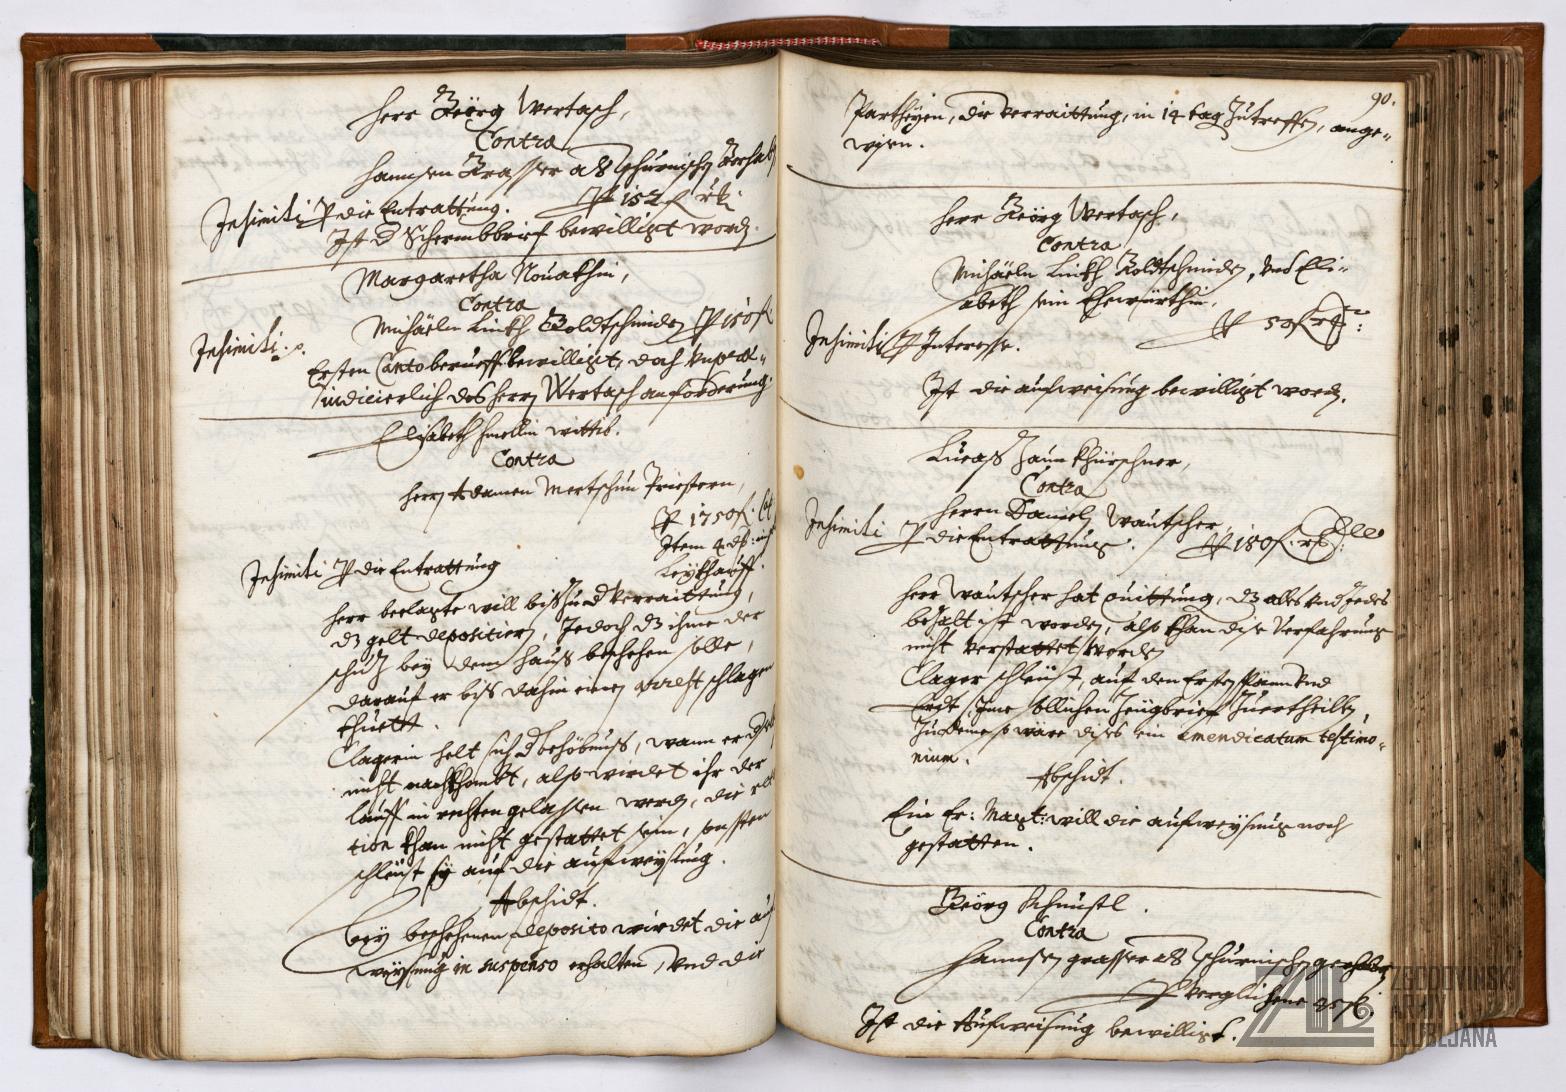 Herr Geörg Wertasch,
Contra
Hannsen Grasser als Schurnischen Gerhab
Insimiti P die Entrattung. P 152 f
Ist d Schermbbrief bewilligt word.
Margaretha Nouakhin,
Contra
Michäeln Linkh Goldtschmiden P 150 f
Insimiti.
Ersten Canto beruefs bewilligt, doch vnprae-
iudicierlich des Herrn Wertasch anforderung.
Elisabeth wittib.
Contra
Herrn Adamen Mertschun Priestern,
P 1750 f.
Item
Leykhauff.
Insimiti P die Entrattung
Herr beclagte will biß zu d verraittung,
dz gelt depositiern, Jedoch dz ihme der
schuz bey dem hauß beschehen solle,
darauf er biß dahin einen arrest schlagen
thuett.
Clagerin helt sich d behöbnuß, wann er
nicht nachkhombt, also wirdet ihr der
lauff in rechten gelassen werden, die
tion khan nicht gestattet sein, sonsten
schleust sy auf die aufweysung.
Abschidt.
Bey beschehenen deposito wirdet die auf
weysung in suspenso erhalten, vnd die
90.
Partheyen, die verraittung, in 14 tag zutreffen, ange-
wisen.
Herr Geörg Wertasch,
Contra
Michäeln Linkh Goldtschmiden, vnd Eli-
abeth sein Ehewürthin.
Insimiti P Interesse. P 50 f
Ist die aufweisung bewilligt worden.
Lucaß Jaun Khürschner,
Contra
Herrn Daniel Wautscher,
Insimiti P die Entrattung. P 150 f
Herr Wautscher hat quittung, dz alles vnd Jedes
bezalt ist worden, also khan dise Verfahrung
nicht verstattet werden
Clager schleust, auf den Ersten
Erdt, Ime söllichen Zeugbrief Zuertheilen,
Zudeme so wäre dises ein emendicatum testimo-
nium.
Abschidt.
Ein Er: Magt: will die aufweysung noch
gestatten.
Geörg Schnustl.
Contra
Hannsen grasser als Schurnischen gerhaben
P verglichene
Ist die Aufweisung bewilligt.
ZAL
ZGODOVINSKI
ARHIV
LJUBLJANA